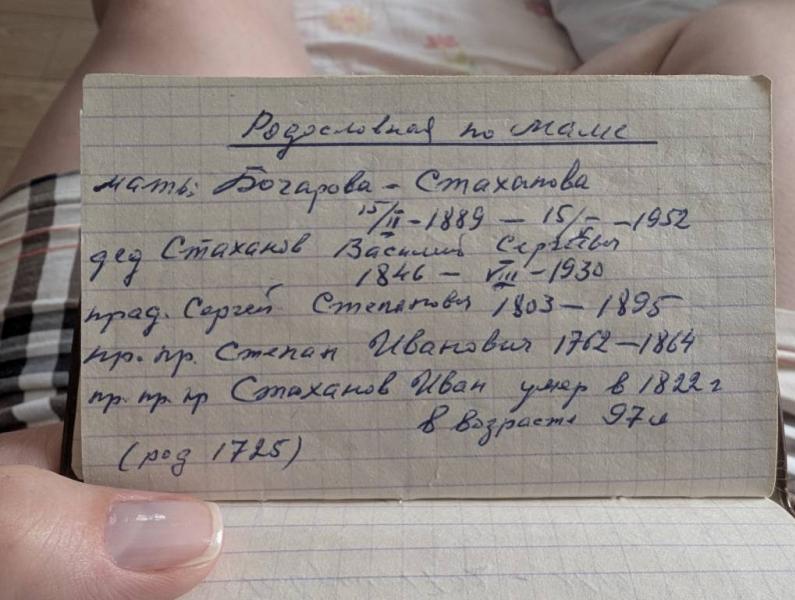 Родословная по маме
мать: Бочарова - Стаханова
15/II - 1889 - 15/I - 1952
дед Стаханов Василий Сергеевич
1846 - VIII - 1930
прад. Сергей Степанович 1803 - 1895
пр. пр. Степан Иванович 1762 - 1864
пр. пр. пр Стаханов Иван умер в 1822 г
в возрасте 97 л
(род 1725)